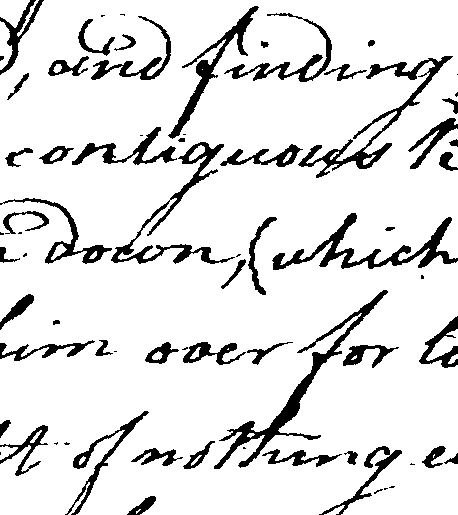 , and finding
contiguous
down, (which
him over for
of nothing